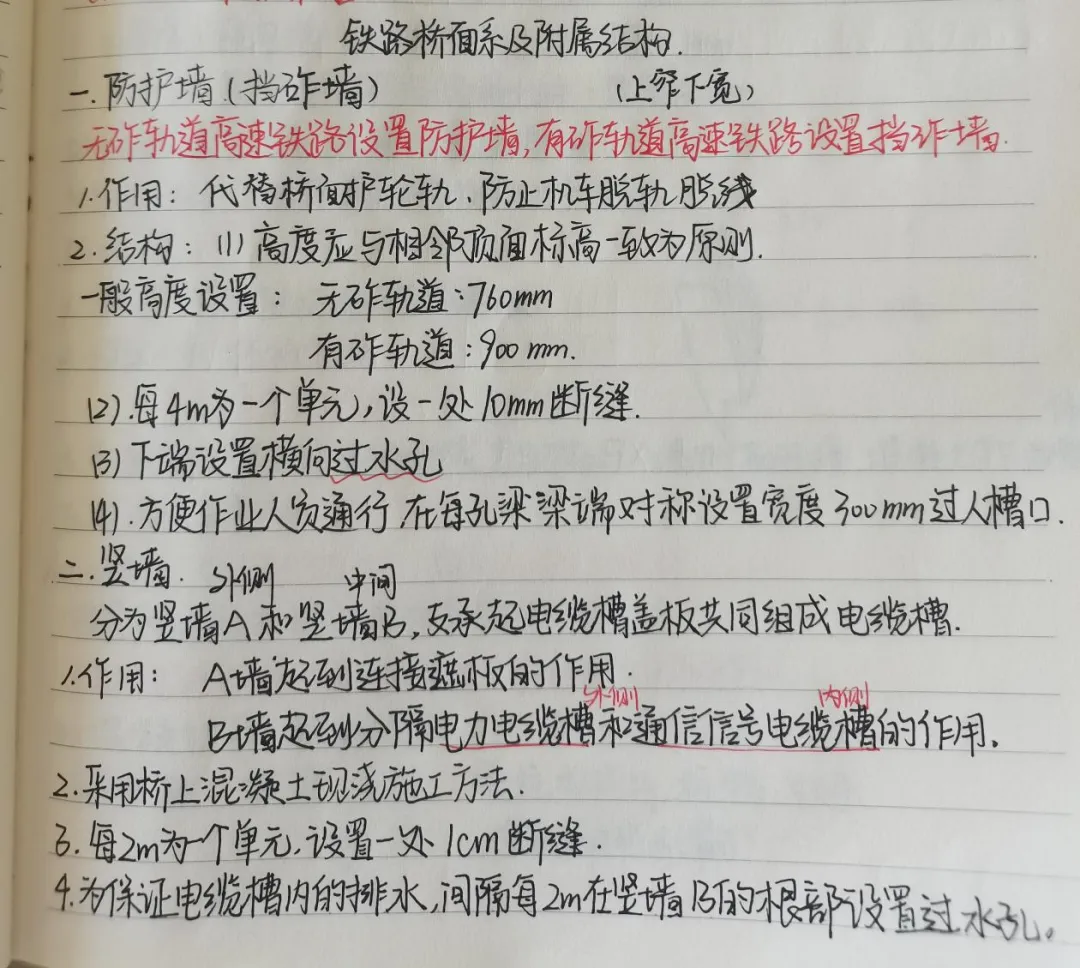 铁路桥面系及附属结构.
一.防护墙(挡砟墙) (上窄下宽)
无砟轨道高速铁路设置防护墙,有砟轨道高速铁路设置挡砟墙.
1.作用: 代替桥面护轮轨、防止机车脱轨脱线
2.结构: (1)高度应与相邻顶面标高一致为原则.
一般高度设置: 无砟轨道:760mm
有砟轨道:900mm.
(2).每4m为一个单元,设一处10mm断缝.
(3)下端设置横向过水孔
(4).方便作业人员通行 在每孔梁梁端对称设置宽度300mm过人槽口.
二.竖墙. 外侧 中间
分为竖墙A和竖墙B,支承起电缆槽盖板共同组成电缆槽.
1.作用: A墙起到连接遮板的作用.
外侧 内侧
B墙起到分隔电力电缆槽和通信信号电缆槽的作用.
2.采用桥上混凝土现浇施工方法.
3.每2m为一个单元,设置一处1cm断缝.
4.为保证电缆槽内的排水,间隔每2m在竖墙B的根部设置过水孔。